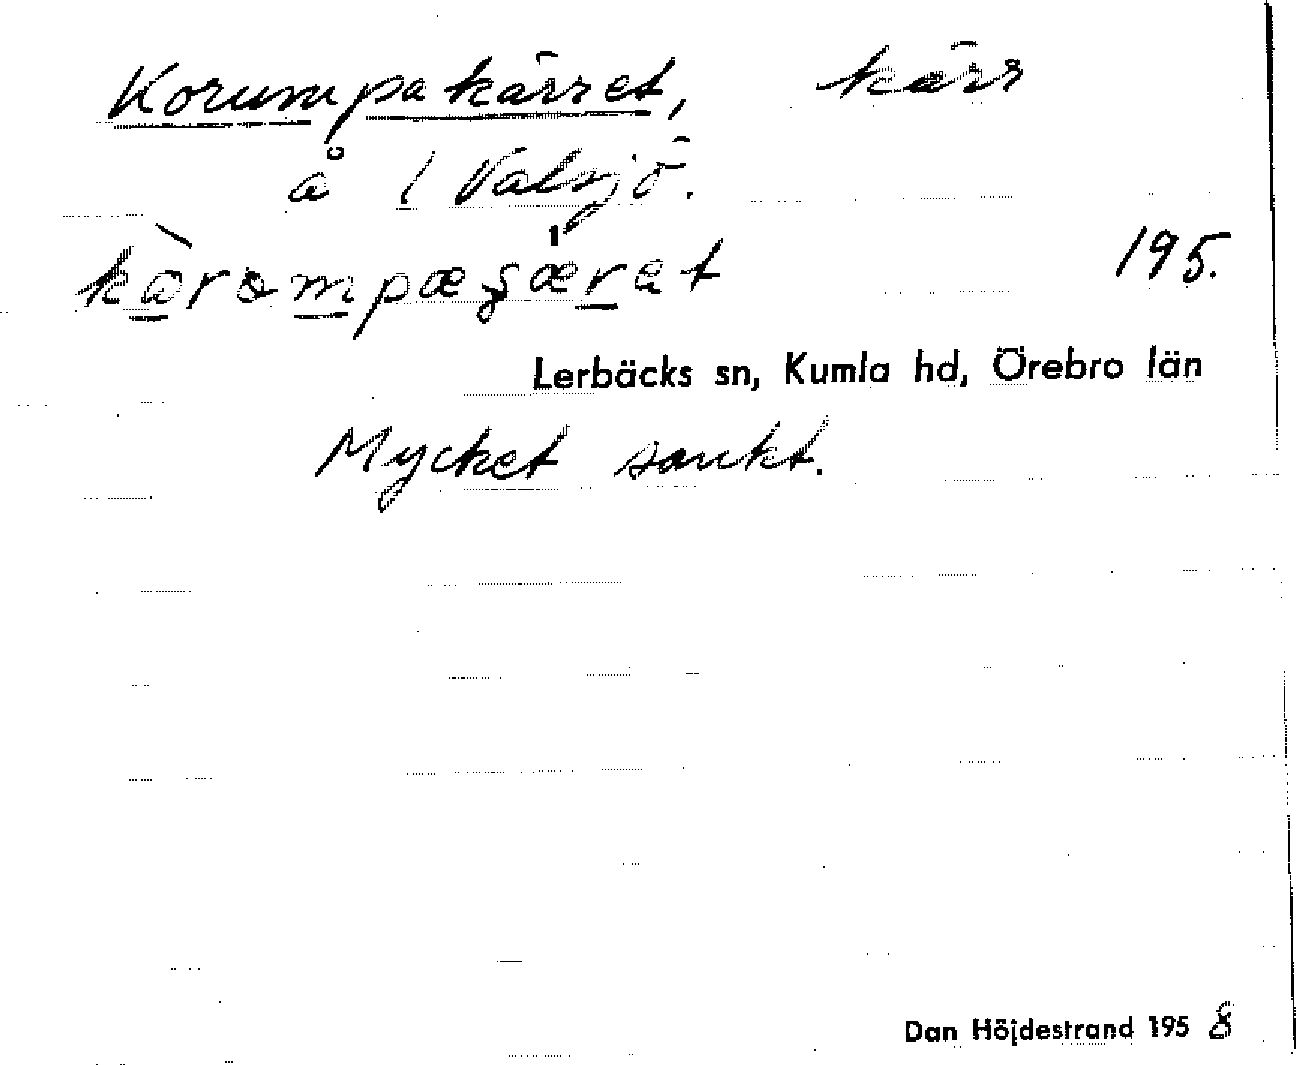 Korumpakärret, kärr
å 1 Valsjö.
195.
Lerbäcks sn, Kumla hd, Örebro län
Mycket sankt.
Dan Höjdestrand 1958